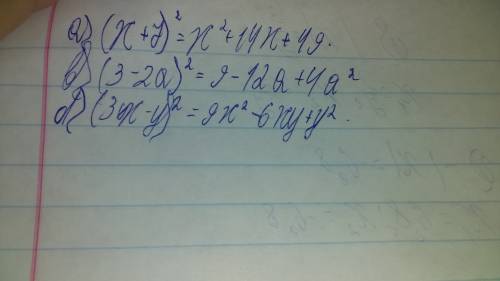 а) (x+7)²=x²+14x+49.
в) (3-2a)²=9-12a+4a²
б) (3x-y)²=9x²-6xy+y².